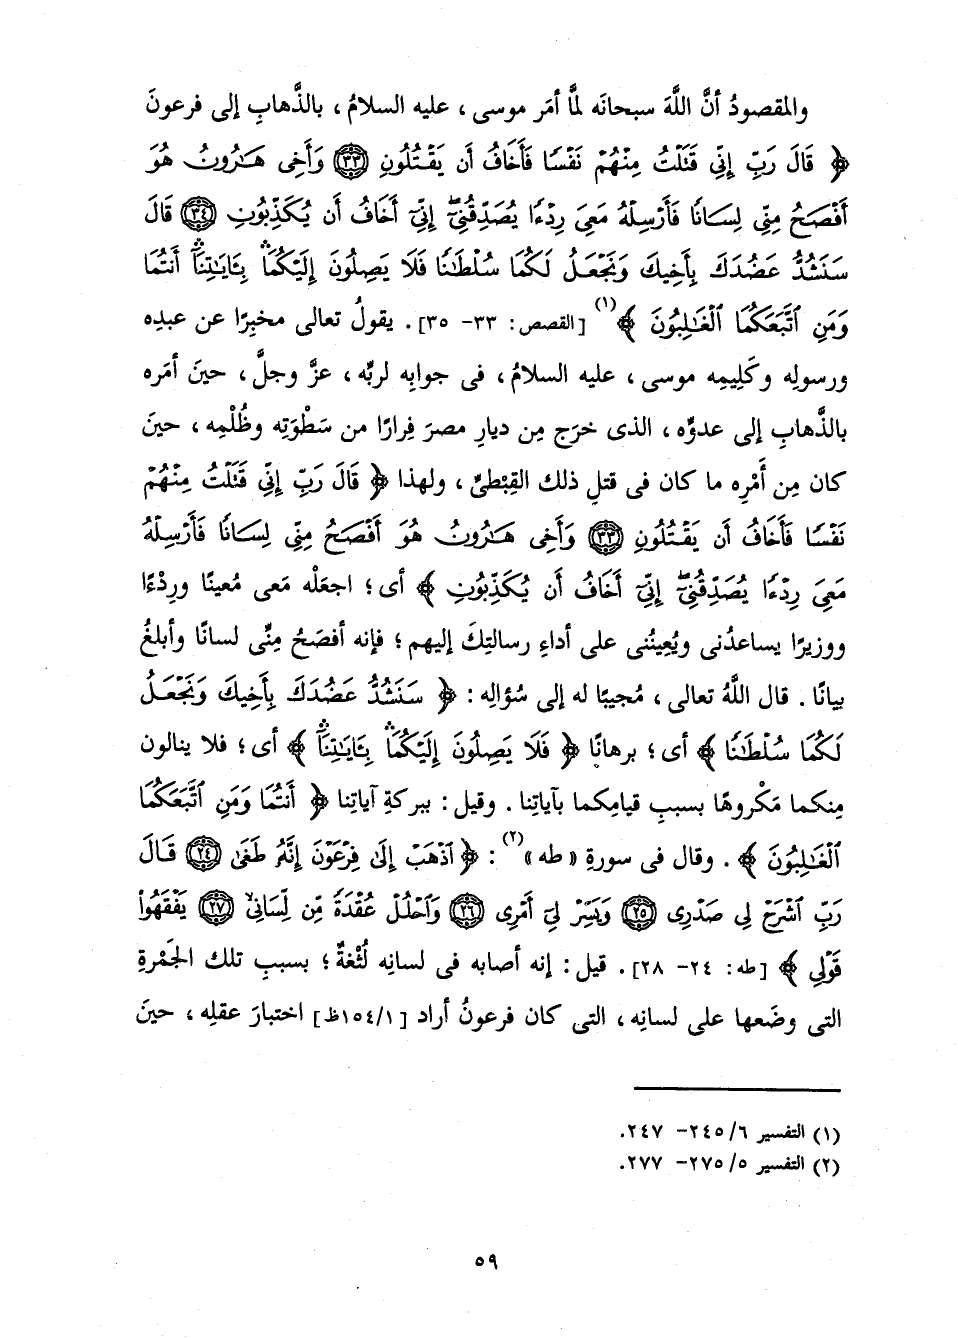 والمقصودُ أنَّ اللَّهَ سبحانَه لمَّا أمَر موسى ، عليه السلامُ ، بالذَّهابِ إلى فرعونَ
﴿ قَالَ رَبِّ إِنِّي قَتَلْتُ مِنْهُمْ نَفْسًا فَأَخَافُ أَن يَقْتُلُونِ ﴿٣٣﴾ وَأَخِى هَٰرُونُ هُوَ
أَفْصَحُ مِنِّى لِسَانًا فَأَرْسِلْهُ مَعِىَ رِدْءًا يُصَدِّقُنِىٓ ۖ إِنِّىٓ أَخَافُ أَن يُكَذِّبُونِ ﴿٣٤﴾ قَالَ
سَنَشُدُّ عَضُدَكَ بِأَخِيكَ وَنَجْعَلُ لَكُمَا سُلْطَٰنًا فَلَا يَصِلُونَ إِلَيْكُمَا ۛ بِـَٔايَٰتِنَآ ۛ أَنتُمَا
وَمَنِ ٱتَّبَعَكُمَا ٱلْغَٰلِبُونَ ﴾ (١) [القصص: ٣٣- ٣٥] . يقولُ تعالى مخبِرًا عن عبدِه
ورسولِه وكَلِيمِه موسى ، عليه السلامُ ، فى جوابِه لربِّه ، عزَّ وجلَّ ، حينَ أمَره
بالذَّهابِ إلى عدوِّه ، الذى خرَج مِن ديارِ مصرَ فِرارًا من سَطْوَتِه وظُلْمِه ، حينَ
كان مِن أَمْرِه ما كان فى قتلِ ذلك القِبْطىِّ ، ولهذا ﴿ قَالَ رَبِّ إِنِّي قَتَلْتُ مِنْهُمْ
نَفْسًا فَأَخَافُ أَن يَقْتُلُونِ ﴿٣٣﴾ وَأَخِى هَٰرُونُ هُوَ أَفْصَحُ مِنِّى لِسَانًا فَأَرْسِلْهُ
مَعِىَ رِدْءًا يُصَدِّقُنِىٓ ۖ إِنِّىٓ أَخَافُ أَن يُكَذِّبُونِ ﴾ أى ؛ اجعَلْه مَعى مُعينًا ورِدْءًا
ووزيرًا يساعدُنى ويُعِينُنى على أداءِ رسالتِكَ إليهم ؛ فإنه أفصَحُ مِنِّى لسانًا وأبلغُ
بيانًا . قال اللَّهُ تعالى ، مُجيبًا له إلى سُؤالِه : ﴿ سَنَشُدُّ عَضُدَكَ بِأَخِيكَ وَنَجْعَلُ
لَكُمَا سُلْطَٰنًا ﴾ أى ؛ برهانًا ﴿ فَلَا يَصِلُونَ إِلَيْكُمَا ۛ بِـَٔايَٰتِنَآ ۛ ﴾ أى ؛ فلا ينالون
مِنكما مَكْروهًا بسببِ قيامِكما بآياتِنا . وقيل : ببركةِ آياتِنا ﴿ أَنتُمَا وَمَنِ ٱتَّبَعَكُمَا
ٱلْغَٰلِبُونَ ﴾ . وقال فى سورةِ « طه » (٢) : ﴿ ٱذْهَبْ إِلَىٰ فِرْعَوْنَ إِنَّهُۥ طَغَىٰ ﴿٢٤﴾ قَالَ
رَبِّ ٱشْرَحْ لِى صَدْرِى ﴿٢٥﴾ وَيَسِّرْ لِىٓ أَمْرِى ﴿٢٦﴾ وَٱحْلُلْ عُقْدَةً مِّن لِّسَانِى ﴿٢٧﴾ يَفْقَهُوا۟
قَوْلِى ﴾ [طه: ٢٤- ٢٨] . قيل : إنه أصابه فى لسانِه لُثْغةٌ ؛ بسببِ تلك الجَمْرةِ
التى وضَعها على لسانِه ، التى كان فرعونُ أراد [١/١٥٤ظ] اختبارَ عقلِه ، حينَ
(١) التفسير ٦/ ٢٤٥- ٢٤٧.
(٢) التفسير ٥/ ٢٧٥- ٢٧٧.
٥٩